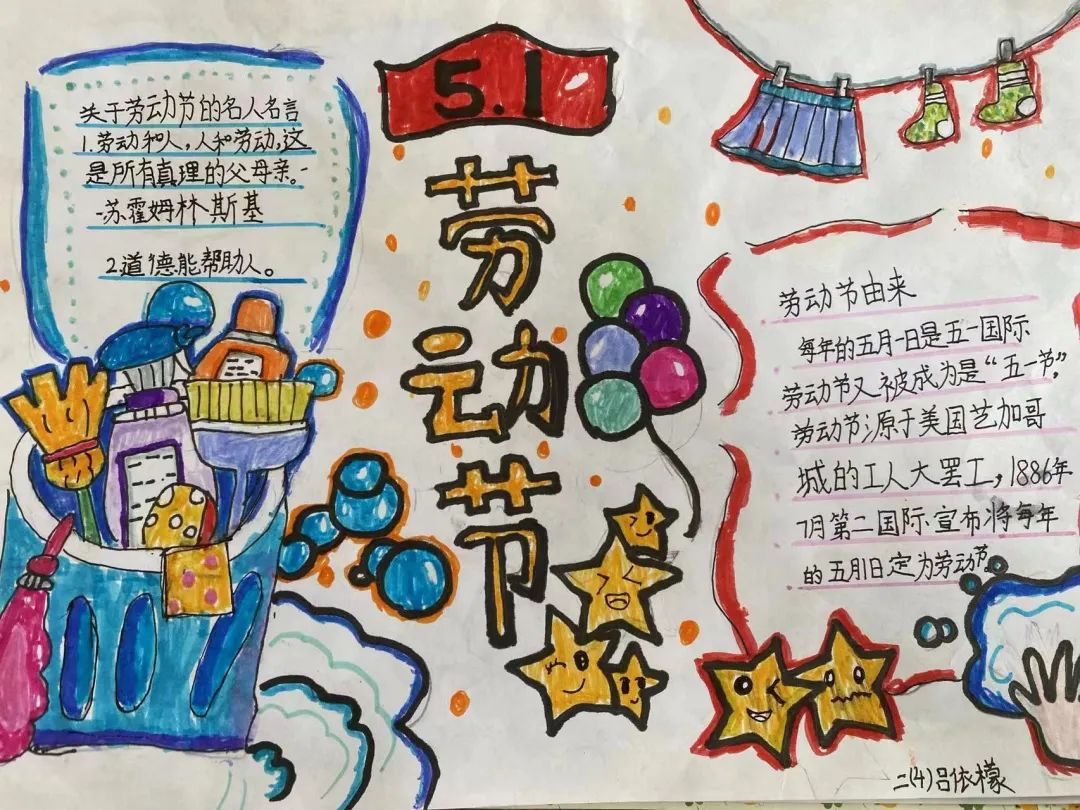 5.1
劳动节
关于劳动节的名人名言
1.劳动和人，人和劳动，这
是所有真理的父母亲。-
-苏霍姆林斯基
2道德能帮助人。
劳动节由来
每年的五月一日是五一国际
劳动节又被成为是“五一节”，
劳动节源于美国艺加哥
城的工人大罢工，1886年
7月第二国际宣布将每年
的五月1日定为劳动节。
二(4)吕依檬